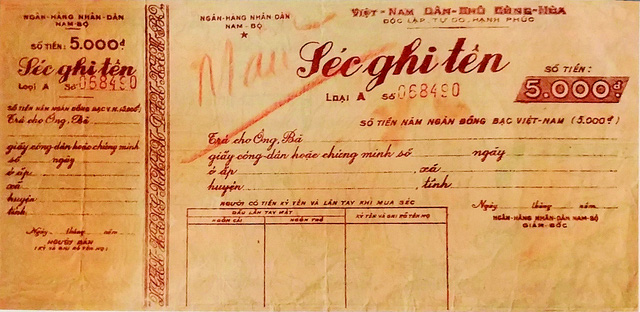 NGÂN-HÀNG NHÂN-DÂN
NAM-BỘ
SỐ TIỀN: 5.000đ
Séc ghi tên
LOẠI A Số 068490
SỐ TIỀN NĂM NGÀN ĐỒNG BẠC V.N.
Trả cho Ông, Bà
giấy công-dân hoặc chứng minh
số ngày
ở ấp
xã
huyện
tỉnh
Ngày tháng năm
NGƯỜI BÁN
(KÝ VÀ GHI RÕ TÊN HỌ)
NGÂN-HÀNG NHÂN DÂN
NAM-BỘ
VIỆT-NAM DÂN-CHỦ CỘNG-HÒA
ĐỘC LẬP, TỰ DO, HẠNH PHÚC
Mẫu
Séc ghi tên
LOẠI A Số 068490
SỐ TIỀN:
5.000đ
SỐ TIỀN NĂM NGÀN ĐỒNG BẠC VIỆT-NAM (5.000đ)
Trả cho Ông, Bà
giấy công-dân hoặc chứng minh số ngày
ở ấp xã
huyện tỉnh
NGƯỜI CÓ TIỀN KÝ TÊN VÀ LĂN TAY KHI MUA SÉC
DẤU LĂN TAY MẶT
NGÓN CÁI NGÓN TRỎ
KÝ TÊN VÀ GHI RÕ TÊN HỌ
Ngày tháng năm
NGÂN-HÀNG NHÂN DÂN NAM-BỘ
GIÁM-ĐỐC